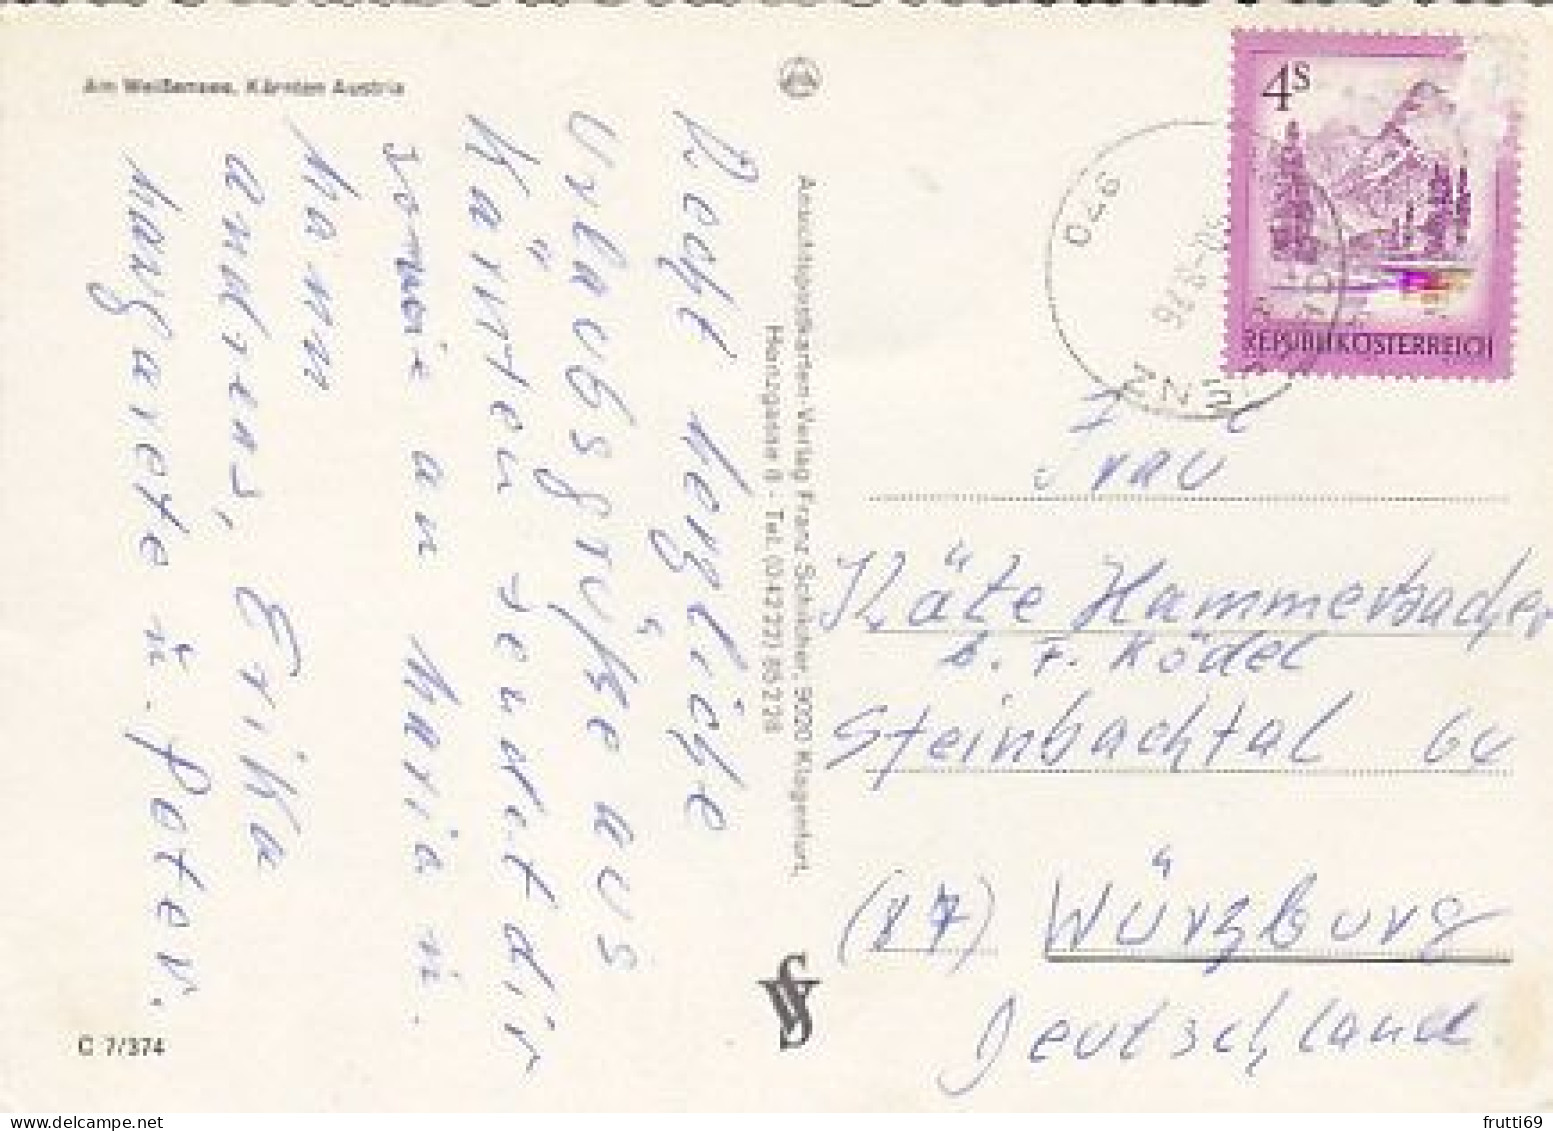 Am Weißensee, Kärnten Austria
Recht herzliche
Urlaubsgrüße aus
Kärnten sendet dir
sowie an Maria u.
Mann
Andreas, Erika
Margarete u. Peter.
C 7/374
Ansichtspostkarten-Verlag Franz Schilcher, 9020 Klagenfurt,
Heinzgasse 8 - Tel. (04222) 85228
4S
REPUBLIK ÖSTERREICH
Frau
Käte Hammerbacher
b. F. Ködel
Steinbachtal 64
(17) Würzburg
Deutschland
frutti69